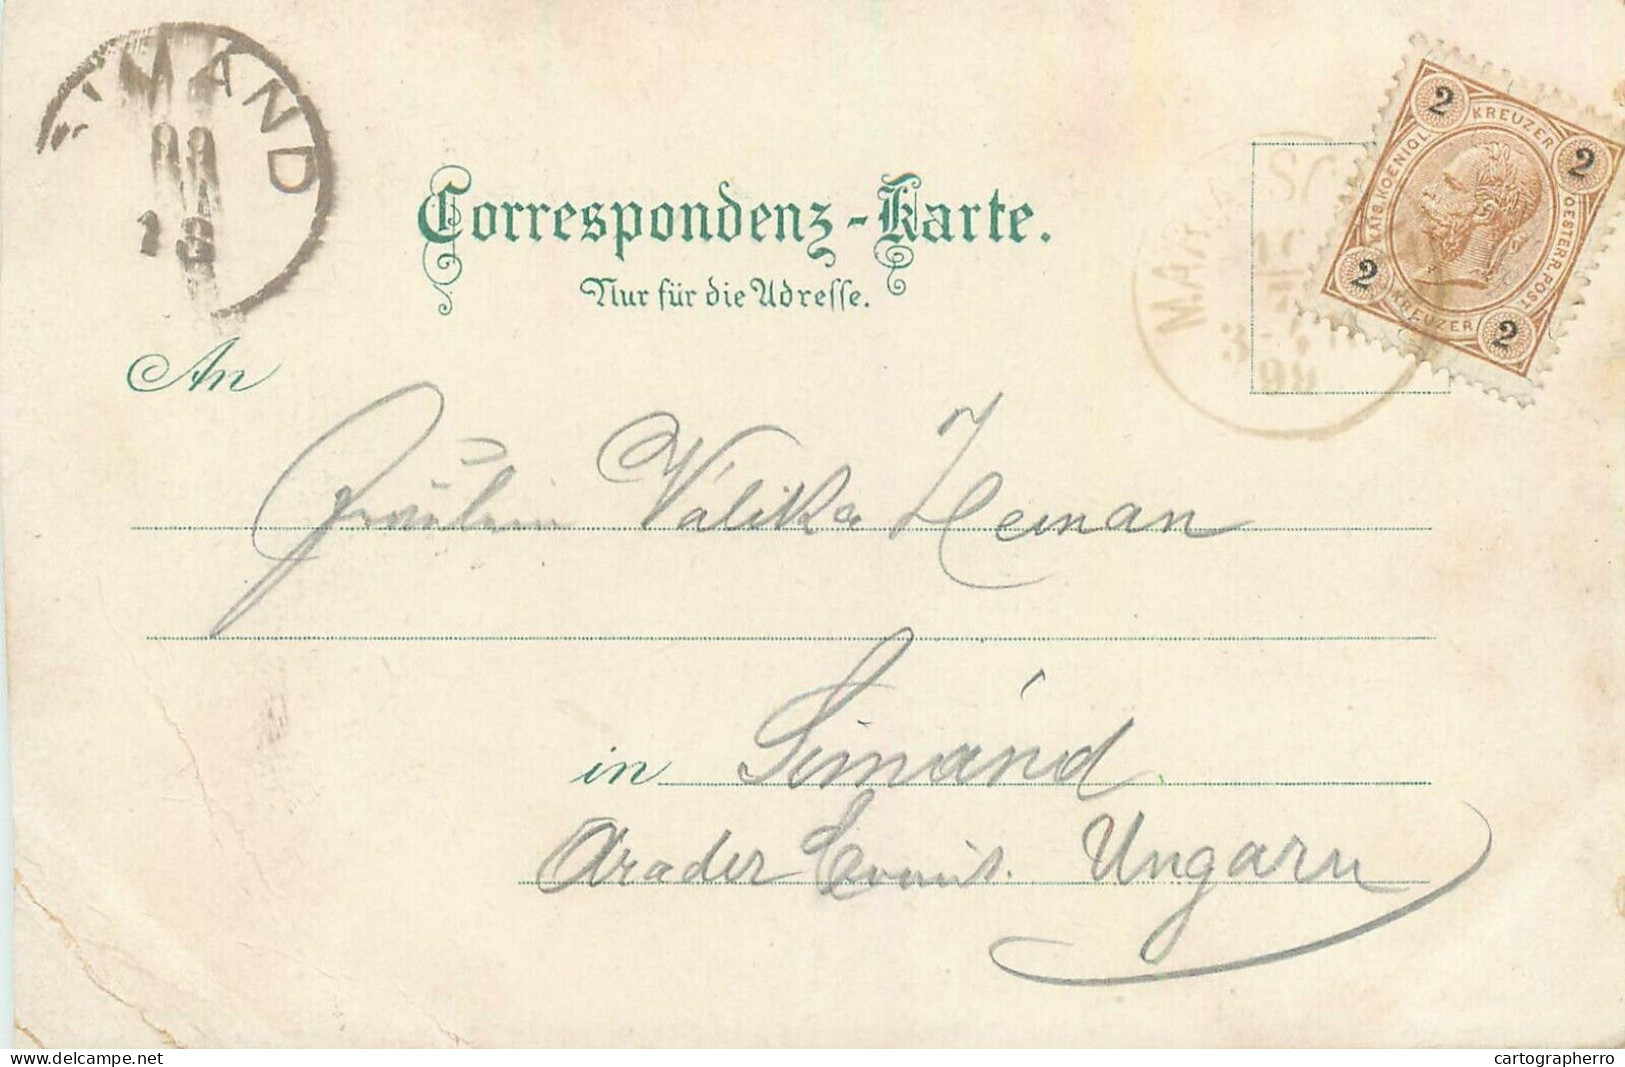 SIMÁND
13
Correspondenz-Karte.
Nur für die Adresse.
2 KREUZER 2
KAIS. KOENIGL. OESTERR. POST
2 KREUZER 2
3-4
99
An
Fräulein Valika Zeman
in Simánd
Arader Comit. Ungarn
delcampe.net
cartographerro